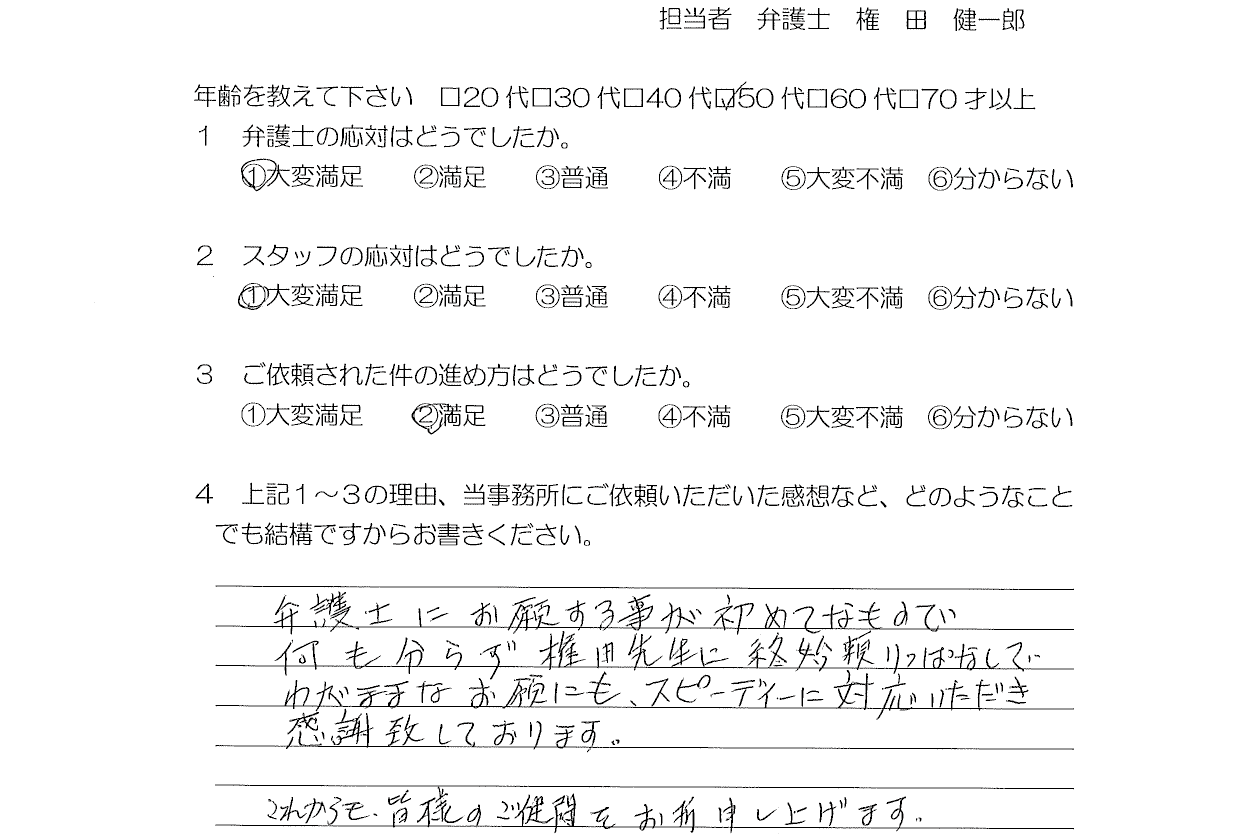 担当者 弁護士 権 田 健一郎
年齢を教えて下さい □20代□30代□40代☑50代□60代□70才以上
1 弁護士の応対はどうでしたか。
①大変満足 ②満足 ③普通 ④不満 ⑤大変不満 ⑥分からない
2 スタッフの応対はどうでしたか。
①大変満足 ②満足 ③普通 ④不満 ⑤大変不満 ⑥分からない
3 ご依頼された件の進め方はどうでしたか。
①大変満足 ②満足 ③普通 ④不満 ⑤大変不満 ⑥分からない
4 上記1〜3の理由、当事務所にご依頼いただいた感想など、どのようなこと
でも結構ですからお書きください。
弁護士にお願する事が初めてなもので
何も分らず権田先生に終始頼りっぱなしで
わがままなお願にも、スピーディーに対応いただき
感謝致しております。
これからも、皆様のご健闘をお祈申し上げます。